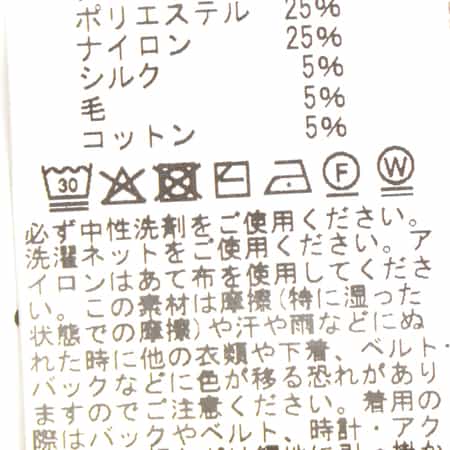 ポリエステル 25%
ナイロン 25%
シルク 5%
毛 5%
コットン 5%
30 F W
必ず中性洗剤をご使用ください。
洗濯ネットをご使用ください。ア
イロンはあて布を使用してくださ
い。この素材は摩擦(特に湿った
状態での摩擦)や汗や雨などにぬ
れた時に他の衣類や下着、ベルト・
バックなどに色が移る恐れがあり
ますのでご注意ください。着用の
際はバックやベルト、時計・アク